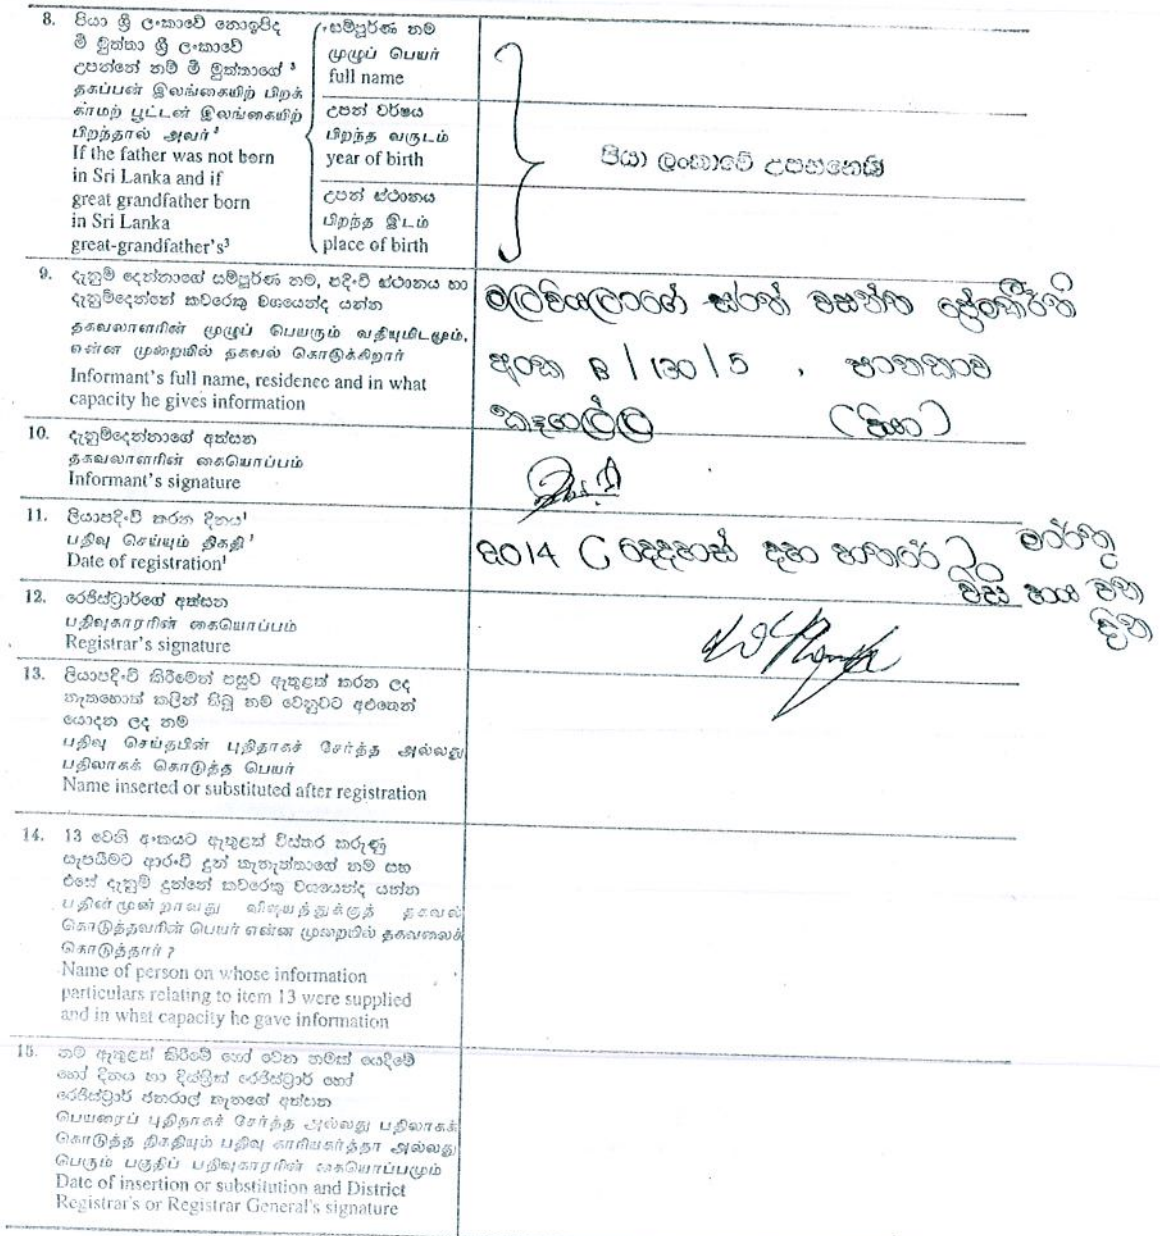 8. පියා ශ්‍රී ලංකාවේ නොඉපිද
මී මුත්තා ශ්‍රී ලංකාවේ
උපන්නේ නම් මී මුත්තාගේ ³
தகப்பன் இலங்கையிற் பிறக்
காமற் பூட்டன் இலங்கையிற்
பிறந்தால் அவர் ³
If the father was not born
in Sri Lanka and if
great grandfather born
in Sri Lanka
great-grandfather's³
සම්පූර්ණ නම
முழுப் பெயர்
full name
උපන් වර්ෂය
பிறந்த வருடம்
year of birth
උපන් ස්ථානය
பிறந்த இடம்
place of birth
පියා ලංකාවේ උපන්නෙයි
9. දැනුම් දෙන්නාගේ සම්පූර්ණ නම, පදිංචි ස්ථානය හා
දැනුම්දෙන්නේ කවරෙකු වශයෙන්ද යන්න
தகவலாளரின் முழுப் பெயரும் வதியுமிடமும்,
என்ன முறையில் தகவல் கொடுக்கிறார்
Informant's full name, residence and in what
capacity he gives information
සරත් වසන්ත ප්‍රේමකීර්ති
අංක B / 130 / 5 ,
කෑගල්ල (පියා)
10. දැනුම්දෙන්නාගේ අත්සන
தகவலாளரின் கையொப்பம்
Informant's signature
11. ලියාපදිංචි කරන දිනය¹
பதிவு செய்யும் திகதி ¹
Date of registration¹
2014 ( දෙදහස් දහ හතරේ ) මාර්තු
විසි හය වන
දින
12. රෙජිස්ට්‍රාර්ගේ අත්සන
பதிவுகாரரின் கையொப்பம்
Registrar's signature
13. ලියාපදිංචි කිරීමෙන් පසුව ඇතුළත් කරන ලද
නැතහොත් කලින් තිබූ නම වෙනුවට අළුතෙන්
යොදන ලද නම
பதிவு செய்தபின் புதிதாகச் சேர்த்த அல்லது
பதிலாகக் கொடுத்த பெயர்
Name inserted or substituted after registration
14. 13 වෙනි අංකයට ඇතුළත් විස්තර කරුණු
සැපයීමට ආරංචි දුන් තැනැත්තාගේ නම සහ
එසේ දැනුම් දුන්නේ කවරෙකු වශයෙන්ද යන්න
பதின்மூன்றாவது விஷயத்துக்குத் தகவல்
கொடுத்தவரின் பெயர் என்ன முறையில் தகவலைக்
கொடுத்தார் ?
Name of person on whose information
particulars relating to item 13 were supplied
and in what capacity he gave information
15. නම ඇතුළත් කිරීමේ හෝ වෙන නමක් යෙදීමේ
හෝ දිනය හා දිස්ත්‍රික් රෙජිස්ට්‍රාර් හෝ
රෙජිස්ට්‍රාර් ජනරාල් තැනගේ අත්සන
பெயரைப் புதிதாகச் சேர்த்த அல்லது பதிலாகக்
கொடுத்த திகதியும் பதிவு காரியகர்த்தா அல்லது
பெரும் பகுதிப் பதிவுகாரரின் கையொப்பமும்
Date of insertion or substitution and District
Registrar's or Registrar General's signature